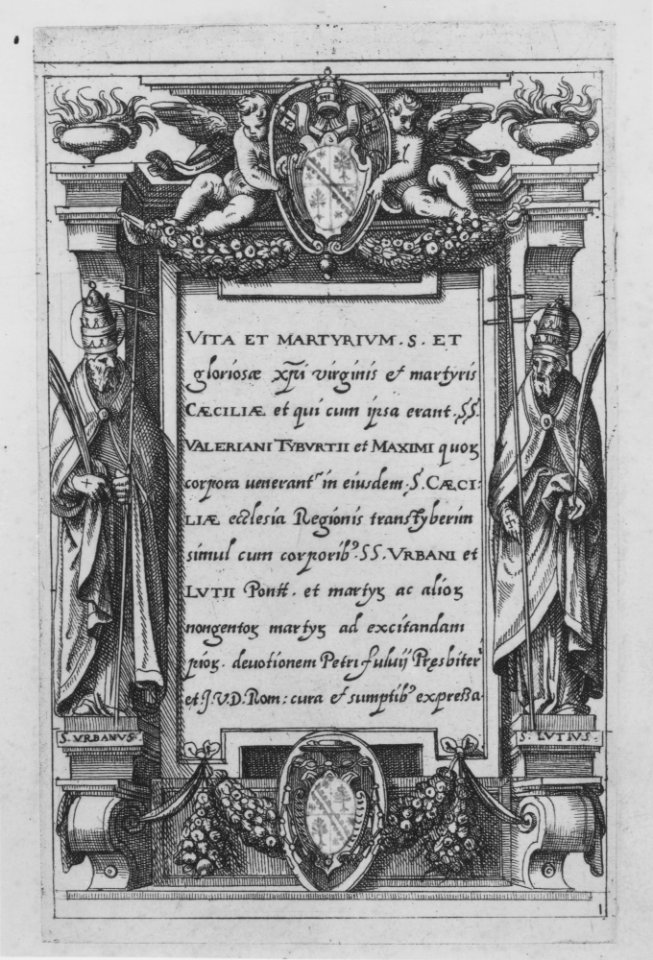 VITA ET MARTYRIVM . S . ET
gloriosæ xp̄i virginis et martyris
CÆCILIÆ et qui cum ipsa erant . SS.
VALERIANI TYBVRTII et MAXIMI quoꝝ
corpora uenerantʳ in eiusdem . S. CÆCI:
LIÆ ecclesia Regionis transtyberim
simul cum corporibꝰ . SS. VRBANI et
LVTII Pontt . et martyꝝ ac alioꝝ
nongentoꝝ martyꝝ ad excitandam
pioꝝ . devotionem Petri fuluij Pręsbiterʲ
et J.V.D. Rom: cura et sumptibꝰ expressa .
S. VRBANVS
S. LVTIVS .
1